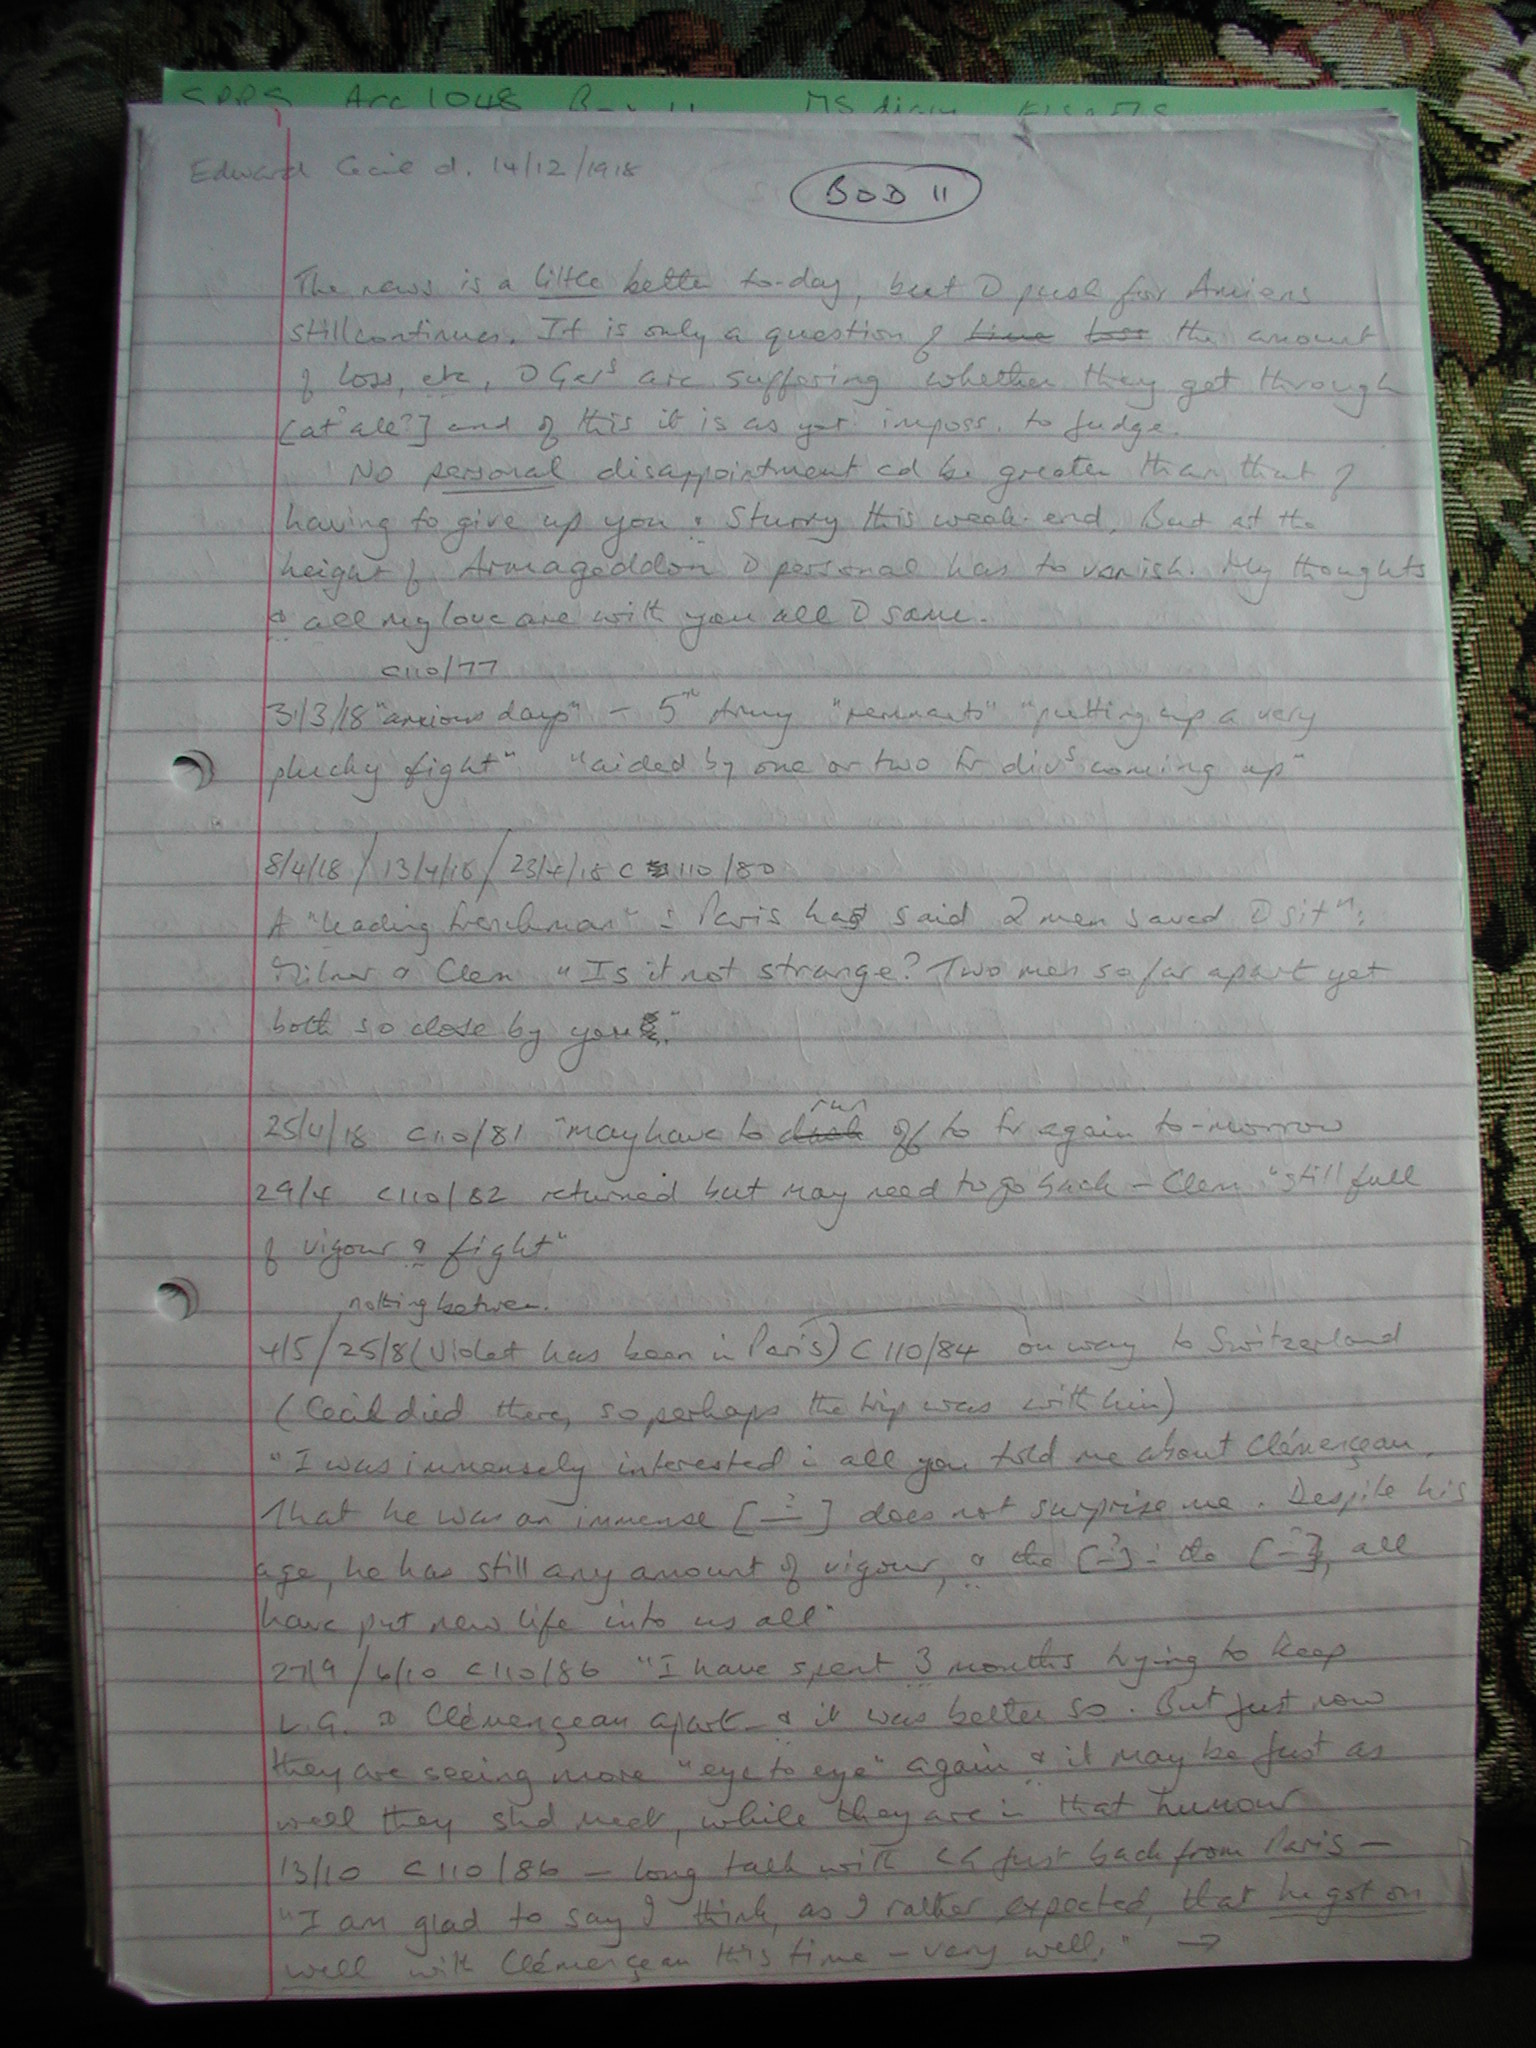 SPRS Acc 1048 Box 11 MS diary
Edward Cecil d. 14/12/1918
BOD 11
The news is a little better to-day, but D push for Amiens
still continues. It is only a question of time loss the amount
of loss, etc, D Gers are suffering whether they get through
[at all?] and of this it is as yet imposs. to judge.
No personal disappointment cd be greater than that of
having to give up you & Sturry this week-end. But at the
height of Armageddon D personal has to vanish. My thoughts
& all my love are with you all D same.
C110/77
31/3/18 "anxious days" - 5th Army "remnants" "putting up a very
plucky fight" "aided by one or two Fr divs coming up"
8/4/18 / 13/4/18 / 23/4/18 C 110/80
A "leading Frenchman" in Paris has said 2 men saved D sitn:
Milner & Clem "Is it not strange? Two men so far apart yet
both so close by you."
run
25/4/18 C110/81 "may have to dash off to Fr again to-morrow
29/4 C110/82 returned but may need to go back - Clem "still full
of vigour & fight"
nothing between.
4/5 / 25/8 (Violet has been in Paris) C110/84 on way to Switzerland
(Cecil died there, so perhaps the trip was with him)
"I was immensely interested in all you told me about Clémençeau.
That he was an immense [-?] does not surprise me. Despite his
age, he has still any amount of vigour, & the [-?] in the [-?], all
have put new life into us all"
27/9 / 6/10 C110/86 "I have spent 3 months trying to keep
L.G. & Clémençeau apart - & it was better so. But just now
they are seeing more "eye to eye" again & it may be just as
well they shd meet, while they are in that humour
13/10 C110/86 - long talk with LG just back from Paris -
"I am glad to say I think, as I rather expected, that he got on
well with Clémençeau this time - very well." →